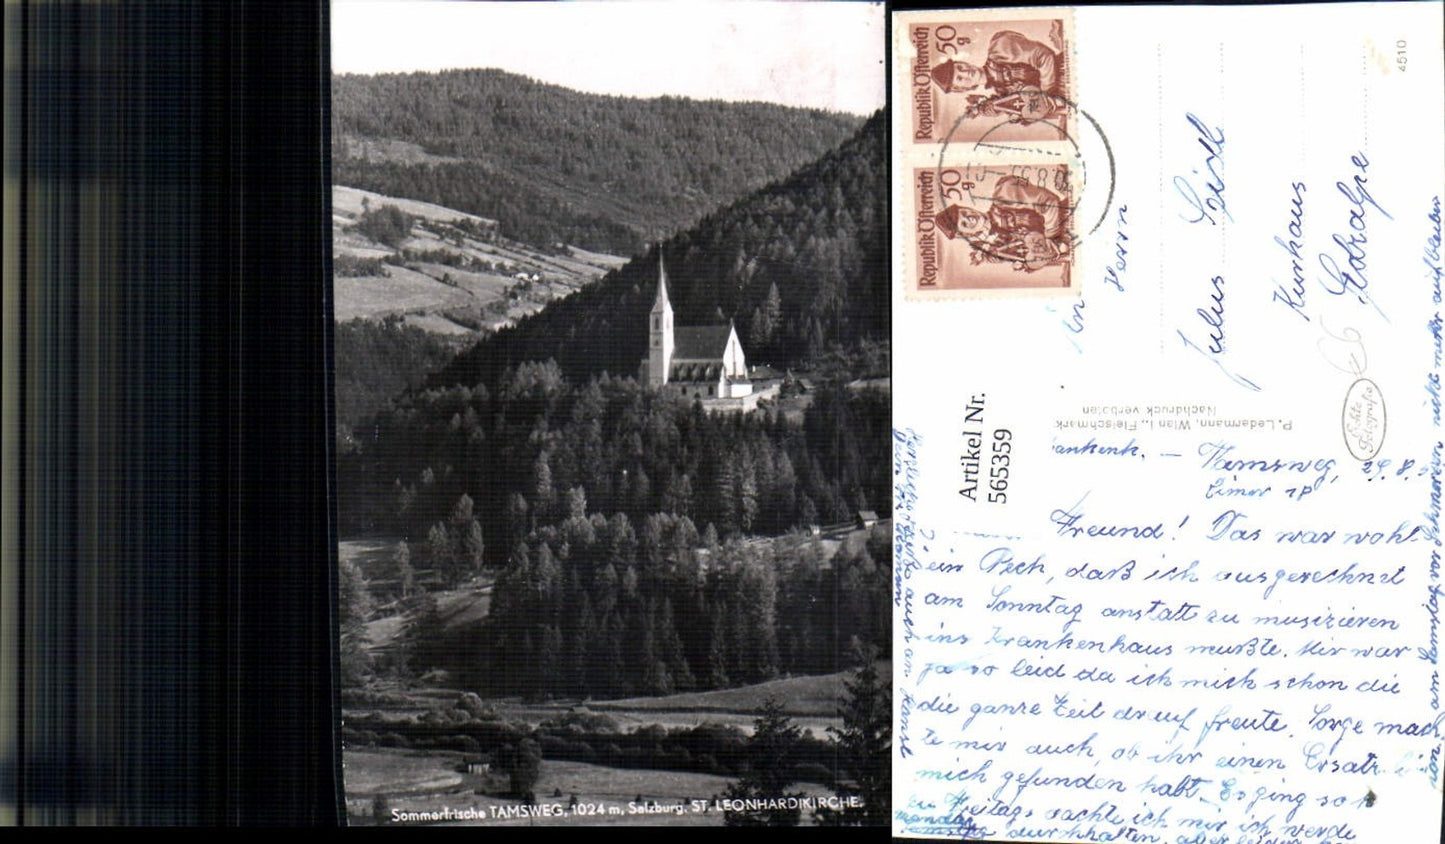 Sommerfrische TAMSWEG, 1024 m, Salzburg. ST. LEONHARDIKIRCHE.
Republik Österreich
50
g
Republik Österreich
50
g
4510
Herrn
Julius Seidl
Kurhaus
P. Ledermann, Wien I., Fleischmarkt
Nachdruck verboten
Echte
Fotografie
Artikel Nr.
565359
Tamsweg, 29.8.
Freund! Das war wohl
ein Pech, daß ich ausgerechnet
am Sonntag anstatt zu musizieren
ins Krankenhaus mußte. Mir war
ja so leid da ich mich schon die
die ganze Zeit drauf freute. Sorge mach
te mir auch, ob ihr einen Ersatz für
mich gefunden habt. Es ging so
Freitags dachte ich mir ich werde
durchhalten, aber leider
am Samstag vor Schmerzen nicht mehr aufbleiben